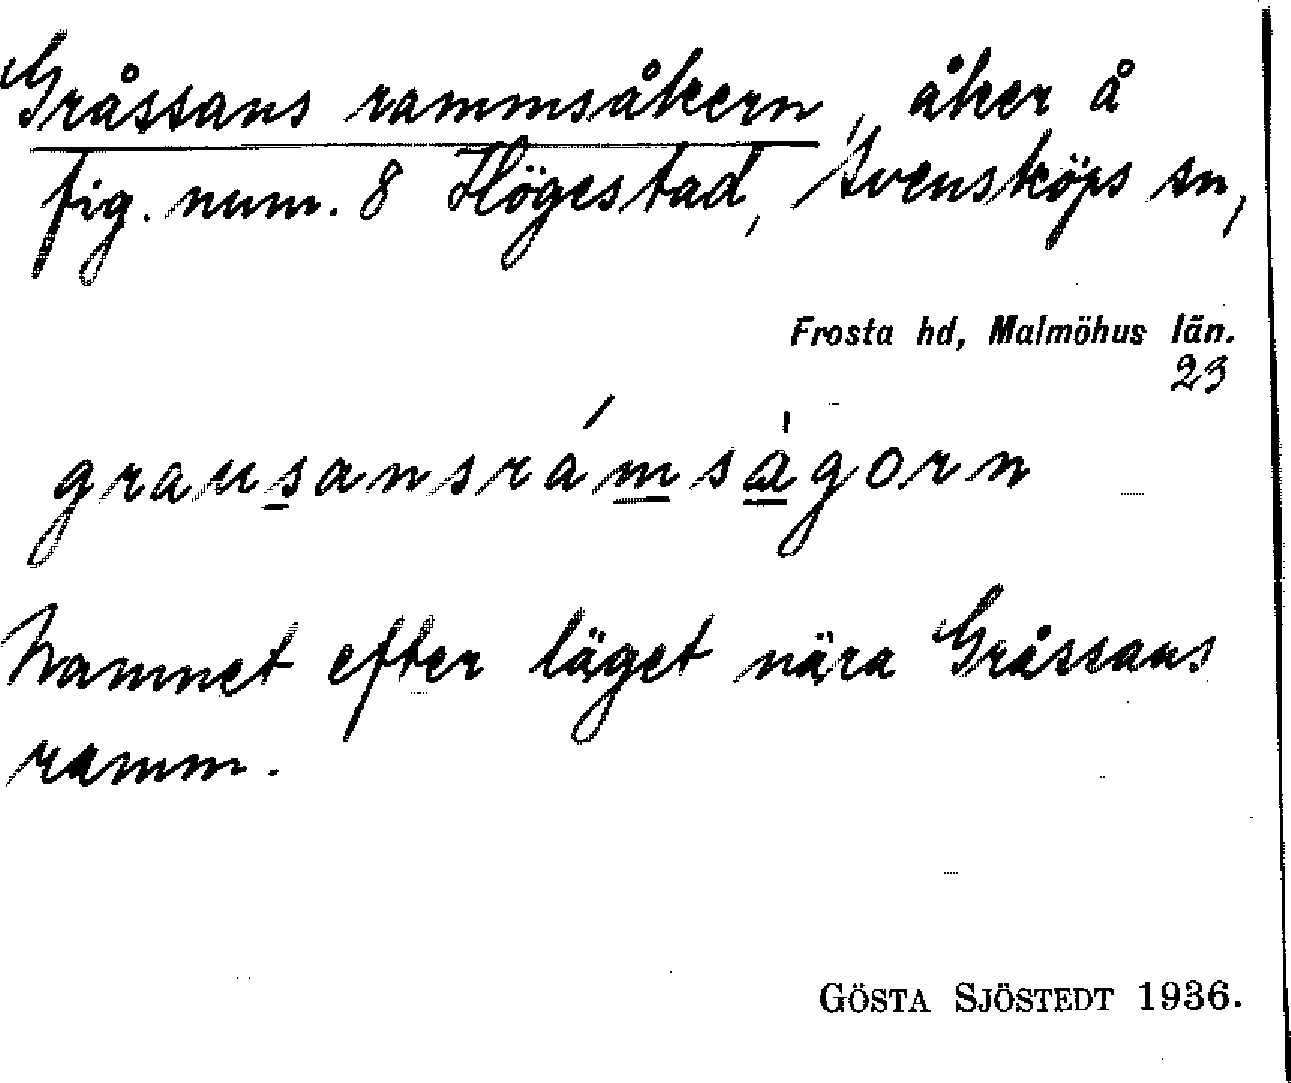 Gråssans rammsåkern, åker å
fig. num. 8 Högestad, Svensköps sn,
Frosta hd, Malmöhus län.
23
grausansrámsågorn
Namnet efter läget nära Gråssans
ramm.
GÖSTA SJÖSTEDT 1936.